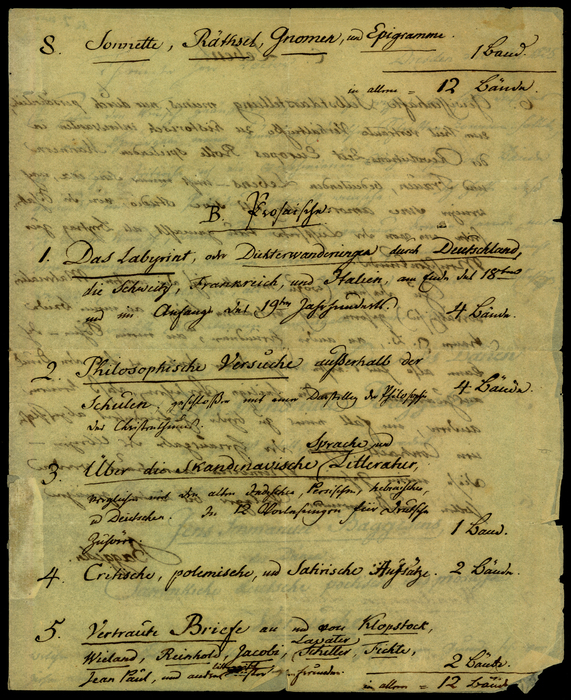 8. Sonnette, Räthsel, Gnomen, und Epigramme.
1 Band.
in allem = 12 Bände.
B. Prosaische:
1. Das Labyrint, oder Dichterwanderungen durch Deutschland,
die Schweitz, Frankreich, und Italien, am Ende des 18ten
und im Anfange des 19ten Jahrhunderts. 4 Bände.
2. Philosophische Versuche außerhalb der
Schulen, geschlossen mit einer Darstellung der Philosophie
des Christenthums. 4 Bände.
Sprache und
3. Über die Skandinavische Litteratur,
verglichen mit der alten Indischen, Persischen, hebräischen,
u Deutschen. In 12 Vorlesungen für Deutsche
Zuhörer. 1 Band.
4. Critische, polemische, und Satirische Aufsätze. 2 Bände.
5. Vertraute Briefe an und von Klopstock,
Lavater
Wieland, Reinhold, Jacobi, Schiller, Fichte,
Jean Paul, und andern freunden. 2 Bände.
in allem = 12 Bände.